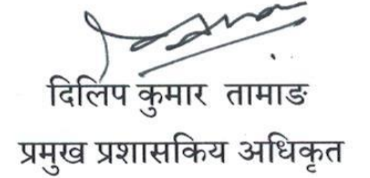 दिलिप कुमार तामाङ
प्रमुख प्रशासकिय अधिकृत